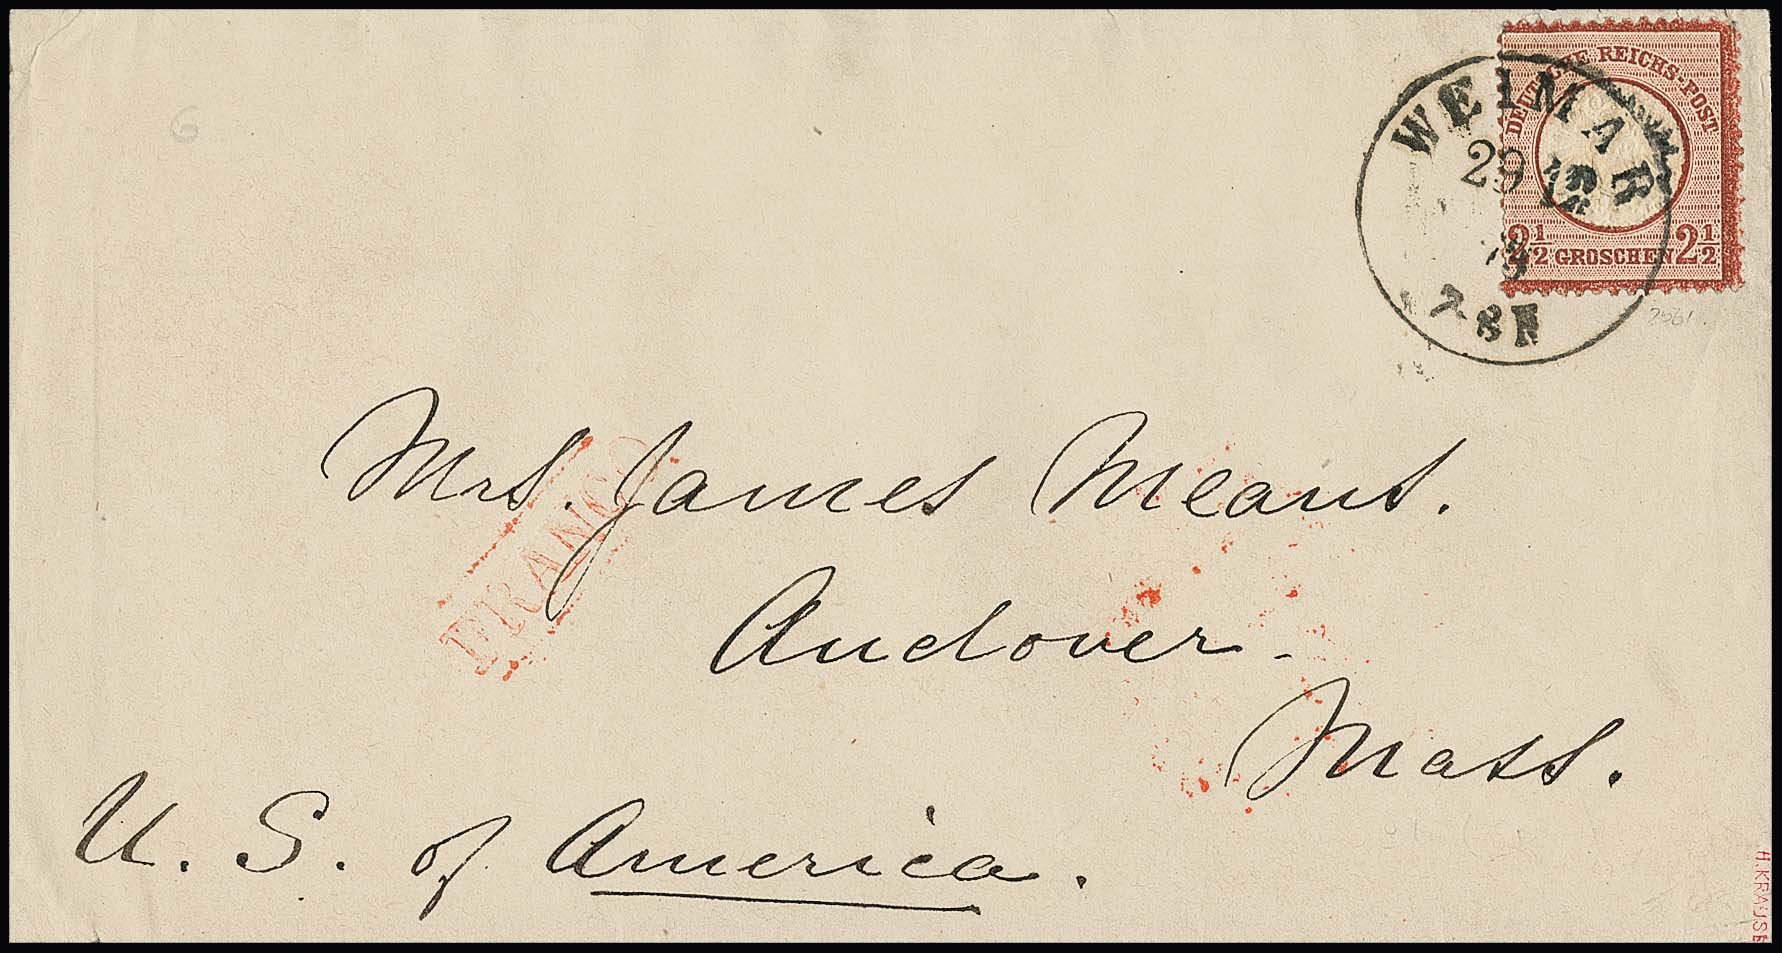 DEUTSCHE REICHS-POST
2½ GROSCHEN 2½
WEIMAR
29
7-8 N
FRANCO
Mrs. James Means.
Andover.
Mass.
U. S. of America.
H. KRAUSE